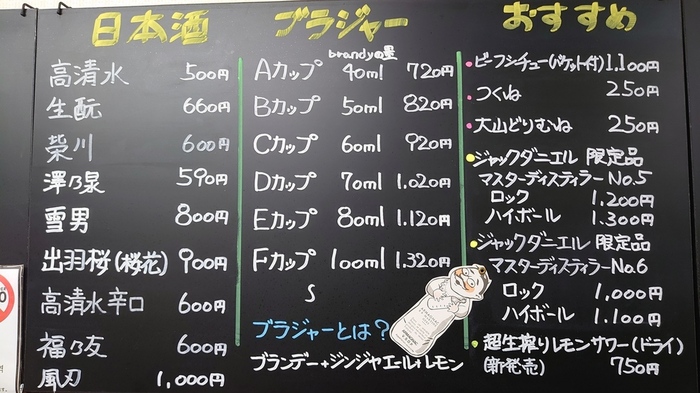 日本酒
高清水 500円
生酛 660円
栄川 600円
澤乃泉 590円
雪男 800円
出羽桜(桜花) 900円
高清水辛口 600円
福乃友 600円
風刃 1,000円
ブラジャー
brandyの量
Aカップ 40ml 720円
Bカップ 50ml 820円
Cカップ 60ml 920円
Dカップ 70ml 1,020円
Eカップ 80ml 1,120円
Fカップ 100ml 1,320円
S
ブラジャーとは?
ブランデー+ジンジャエール+レモン
おすすめ
・ビーフシチュー(バケット付)1,100円
・つくね 250円
・大山どりむね 250円
・ジャックダニエル 限定品
マスターディスティラーNo.5
ロック 1,200円
ハイボール 1,300円
・ジャックダニエル 限定品
マスターディスティラーNo.6
ロック 1,000円
ハイボール 1,100円
・超生搾りレモンサワー(ドライ)
(新発売) 750円